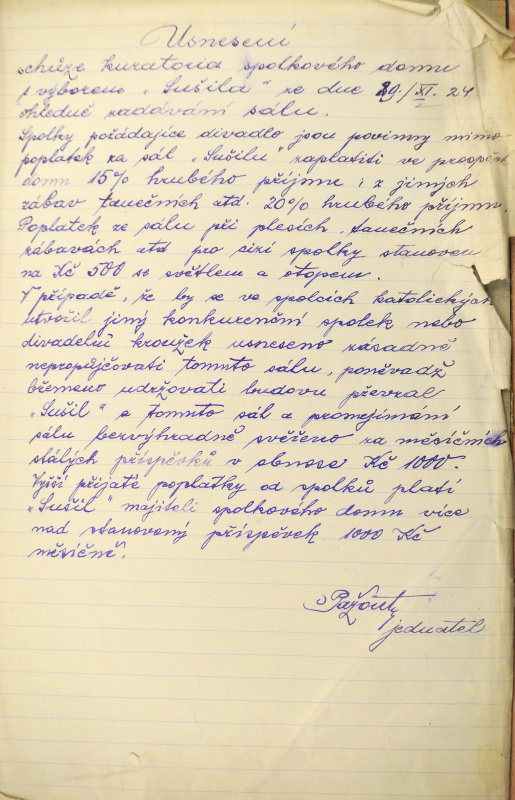 Usnesení
schůze kuratoria spolkového domu
s výborem „Sušila“ ze dne 29./XI. 24
ohledně zadávání sálu.
Spolky pořádajíce divadlo jsou povinny mimo
poplatek za sál „Sušilu“ zaplatiti ve prospěch
domu 15% hrubého příjmu i z jiných
zábav tanečních atd. 20% hrubého příjmu.
Poplatek ze sálu při plesích, tanečních
zábavách atd pro cizí spolky stanoven
na Kč 500 se světlem a otopem.
V případě, že by se ve spolcích katolických
utvořil jiný konkurenční spolek nebo
divadelní kroužek usneseno zásadně
nepropůjčovati tomuto sálu, poněvadž
břemeno udržovati budovu převzal
„Sušil“ a tomuto sál a pronajímání
sálu bezvýhradně svěřeno za měsíčních
stálých příspěvků v obnose Kč 1000.
Výšší přijaté poplatky od spolků platí
„Sušil“ majiteli spolkového domu více
nad stanovený příspěvek 1000 Kč
měsíčně.
jednatel